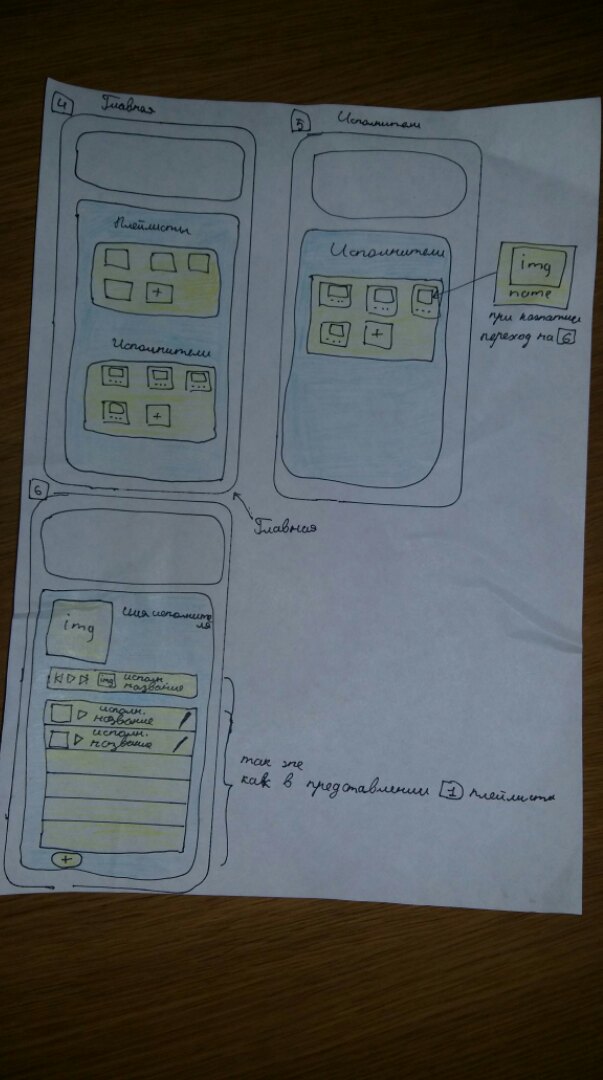 4 Главная
Плейлисты
+
Исполнители
+
5 Исполнители
Исполнители
+
img
name
при нажатии
переход на 6
Главная
6
img
имя исполните
ля
img исполн.
название
исполн.
название
исполн.
название
+
так же
как в представлении 1 плейлисты